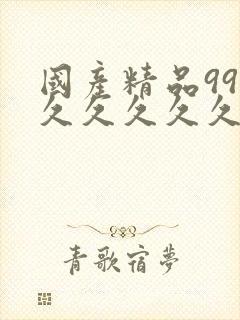 國產精品99
久久久久久
青歌宿夢